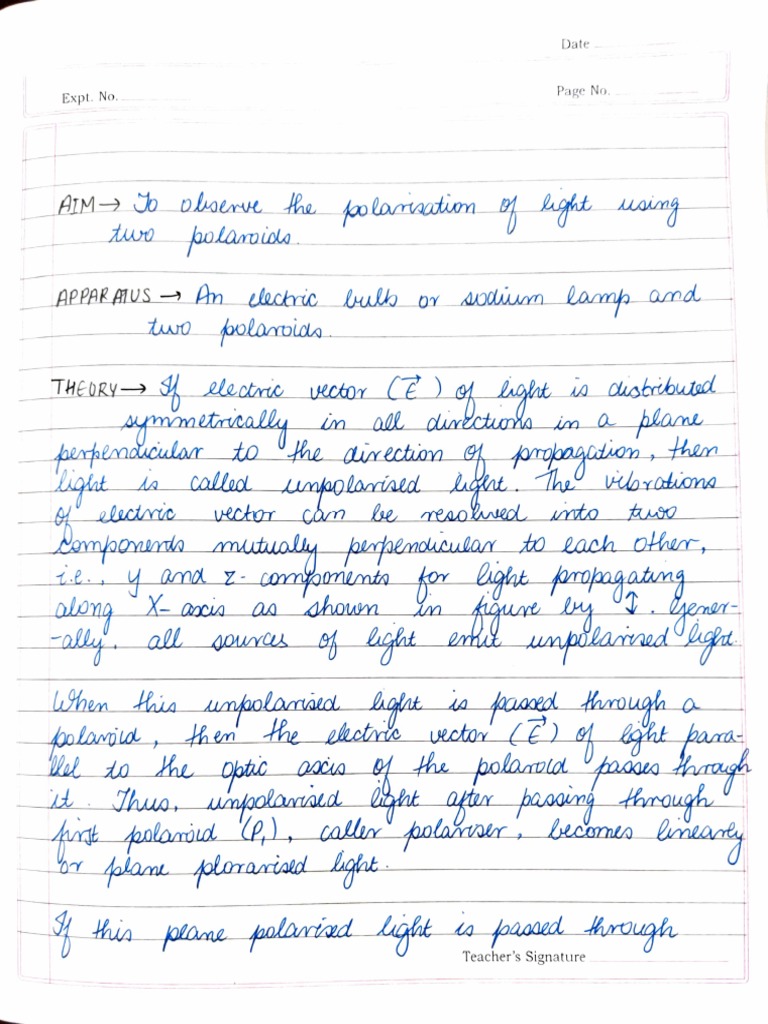 Date
Expt. No.
Page No.
AIM → To observe the polarisation of light using
two polaroids.
APPARATUS → An electric bulb or sodium lamp and
two polaroids.
THEORY → If electric vector (E⃗) of light is distributed
symmetrically in all directions in a plane
perpendicular to the direction of propagation, then
light is called unpolarised light. The vibrations
of electric vector can be resolved into two
components mutually perpendicular to each other,
i.e., y and z- components for light propagating
along X-axis as shown in figure by ↕. Gener-
-ally, all sources of light emit unpolarised light.
When this unpolarised light is passed through a
polaroid, then the electric vector (E⃗) of light para-
llel to the optic axis of the polaroid passes through
it. Thus, unpolarised light after passing through
first polaroid (P₁), caller polariser, becomes linearly
or plane plorarised light.
If this plane polarised light is passed through
Teacher's Signature